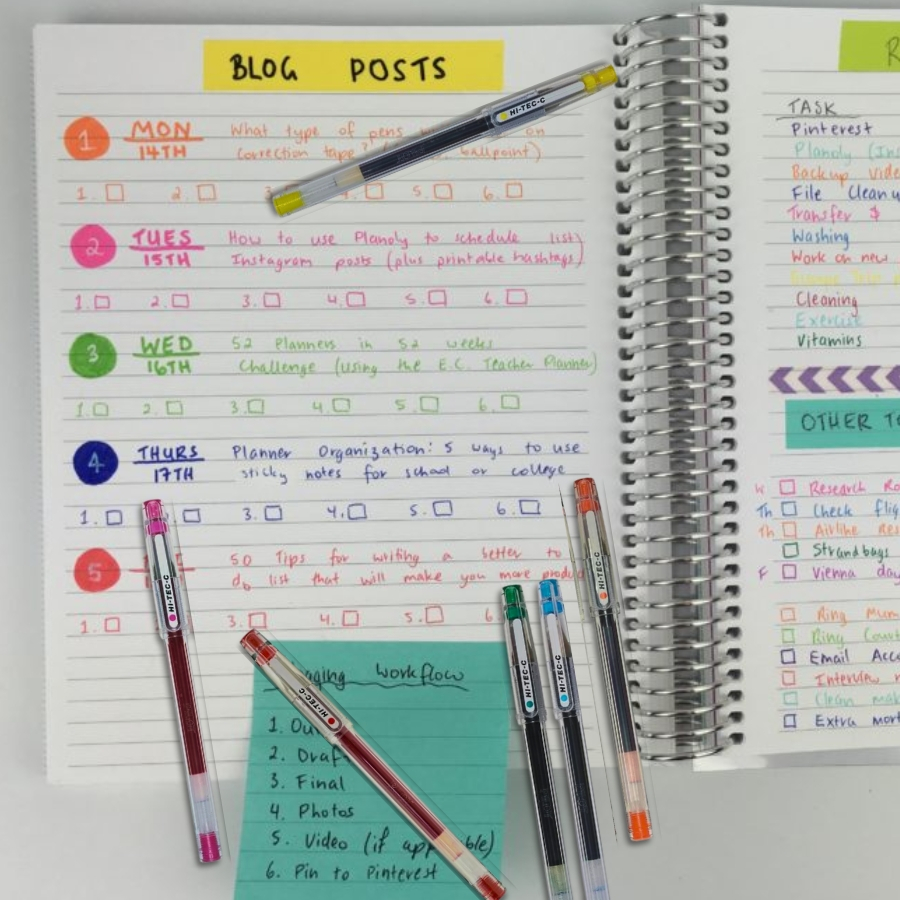 BLOG POSTS
1 MON
14TH
What type of pens on
correction tape? ballpoint)
1. 2. 4. 5. 6.
2 TUES
15TH
How to use Planoly to schedule list)
Instagram posts (plus printable hashtags)
1. 2. 3. 4. 5. 6.
3 WED
16TH
52 Planners in 52 weeks
Challenge (using the E.C. Teacher Planner)
1. 2. 3. 4. 5. 6.
4 THURS
17TH
Planner Organization: 5 ways to use
sticky notes for school or college
1. 3. 4. 5. 6.
5
50 Tips for writing a better to
do list that will make you more
1. 3. 4. 5. 6
workflow
1.
2. Draft
3. Final
4. Photos
5. Video (if applicable)
6. Pin to Pinterest
HI-TEC-C
HI-TEC-C
HI-TEC-C
HI-TEC-C
HI-TEC-C
HI-TEC-C
R
TASK
Pinterest
Planoly (Ins
Backup vide
File Clean u
Transfer $
Washing
Work on new
Cleaning
Exercise
Vitamins
OTHER TO
W Research Ro
Th Check flig
Th Airline Res
Strandbags
F Vienna day
Ring Mum
Ring Court
Email Acc
Interview
Clean mak
Extra mort